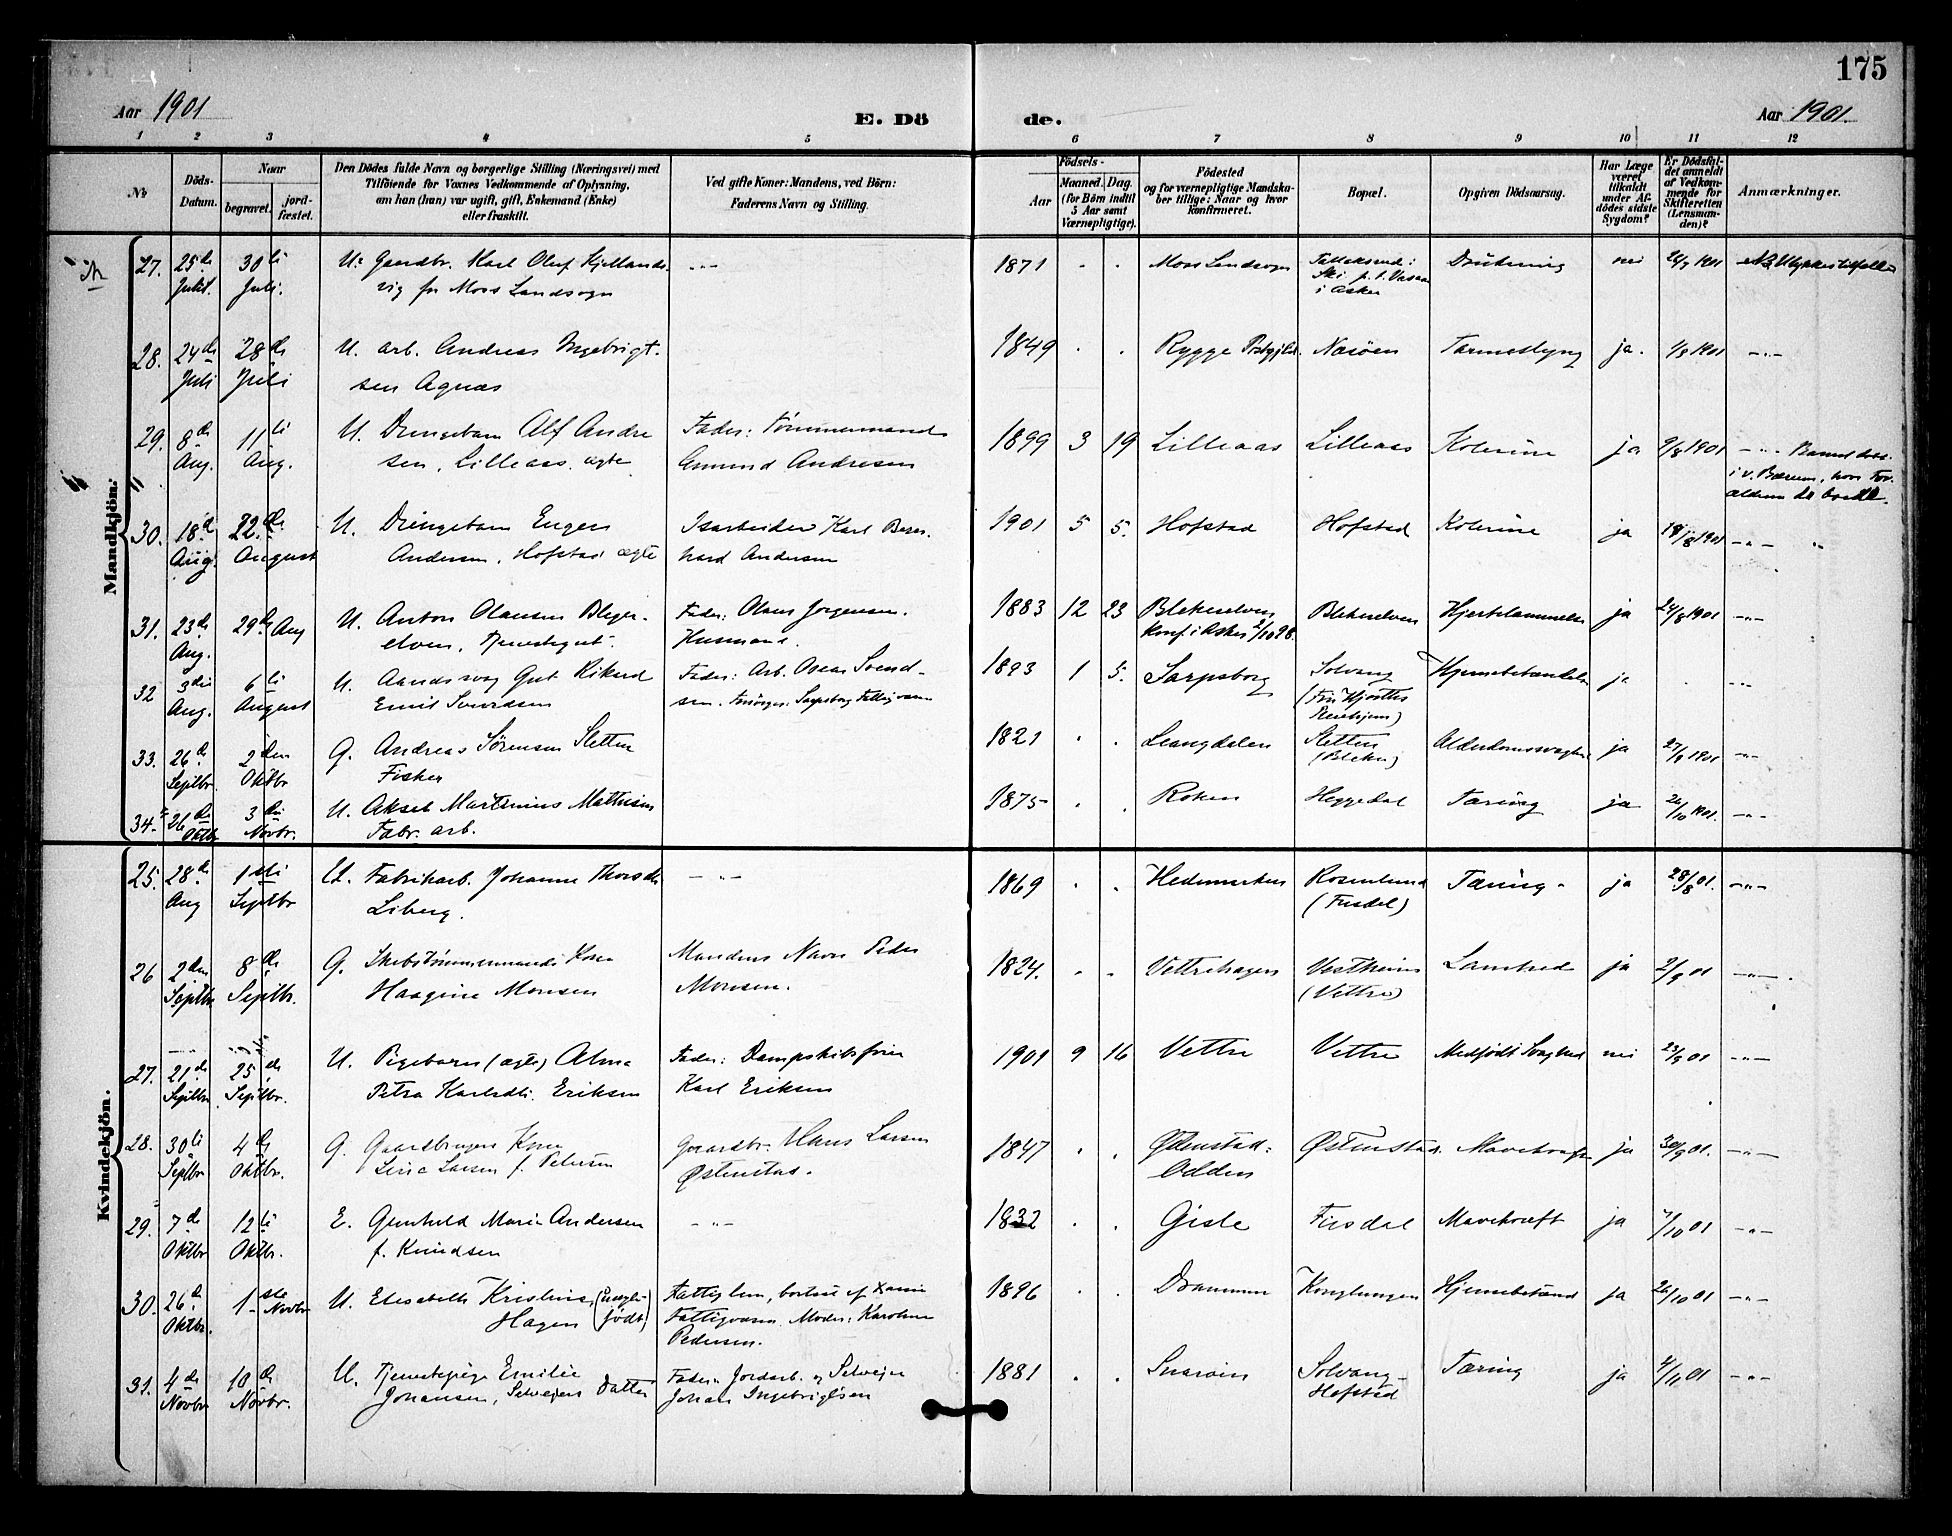 175
Aar 1901
E. Döde.
Aar 1901.
1 2 3 4 5 6 7 8 9 10 11 12
No
Döds-Datum.
Naar
begravet.
jord-fæstet.
Den Dödes fulde Navn og borgerlige Stilling (Næringsvei) med
Tilföiende for Voxnes Vedkommende af Oplysning,
om han (hun) var ugift, gift, Enkemand (Enke)
eller fraskilt.
Ved gifte Koner: Mandens, ved Börn:
Faderens Navn og Stilling.
Födsels-
Aar
Maaned. Dag.
(for Börn indtil
5 Aar samt
Værnepligtige).
Födested
og for værnepligtige Mandska-
ber tillige: Naar og hvor
konfirmeret.
Bopæl.
Opgiven Dödsaarsag.
Har Læge
været
tilkaldt
under Af-
dödes sidste
Sygdom?
Er Dödsfal-
det anmeldt
af Vedkom-
mende for
Skifteretten
(Lensman-
den)?
Anmærkninger.
Mandkjön.
27. 25de Juli. 30te Juli. U. Gaardbr. Karl Oluf Kjellands-
vig fra Moss Landsogn -"- 1871 Moss Landsogn Ski i Asker Drukning nei 26/7 1901 NB Ulykkestilfælde
28. 24de Juli 28de Juli U. arb. Andreas Ingebrigt-
sen Agnæs 1849 Rygge Næsöen Tarmeslyng ja. 1/8 1901 -"-
29. 8de Aug. 11te Aug. U. Drengebarn Alf Andre
sen, Lilleaas, ægte Fader: Tömmermand
Gmund Andresen 1899 3 19 Lilleaas Lilleaas Kolerine ja 9/8 1901 -"- Barnet döde
i V. Bærum, hvor For-
ældrene da boede.
30. 18de Aug. 22de August U. Drengebarn Eugen
Andersen, Hofstad ægte Isarbeider Karl Bern
hard Andersen 1901 5 5. Hofstad Hofstad Kolerine ja 19/8 1901 -"- "
31. 23de Aug. 29de Aug U. Anton Olausen Bleger-
elven, Tjenestegut. Fader: Olaus Jörgensen.
Husmand. 1883 12 23 Blekerelven
konf. i Asker 2/10 98. Blekerelven Hjertelammelse ja 24/8 1901 -"-
32 3die Aug. 6te August U. Aandssvag Gut Rikard
Emil Svendsen Fader: Arb. Oscar Svend-
sen. Forsörges: Sarpsborg Fattigvæsen 1893 1 5. Sarpsborg Solvang
(Frk Hjorths
Pleiehjem) Hjernebetændelse ja -"-
33. 26de Septbr. 2den Oktbr G. Andreas Sörensen Sletten
Fisker 1821 Leangdalen Sletten
(Bleker) Alderdomssvaghed ja 27/9 1901 -"-
34. 26de Oktbr 3die Novbr. U. Aksel Martinius Mathisen
Fabr. arb. 1875 Röken Heggedal Tæring ja 26/10 1901. -"-
Kvindekjön.
25. 28de Aug 1ste Septbr U. Fabrikarb. Johanne Thorsdtr
Liberg. -"- 1869 Hedemarken Rosenlund
(Fusdal) Tæring ja 28/8 01. -"-
26 2den Septbr 8de Septbr. G. Skibstömmermands Kone
Haagine Monsen Mandens Navn Peder
Monsen. 1824. Vettrehagen Vestheim
(Vettre) Lamhed ja 2/9 01 -"-
27. 21de Septbr 25de Septbr. U. Pigebarn (ægte) Alma
Petra Karlsdtr. Eriksen Fader: Dampskibsförer
Karl Eriksen 1901 9 16 Vettre Vettre Medfödt Svaghed nei 23/9 01 -"-
28. 30te Septbr 4de Oktbr. G. Gaardbrugers Kone
Lina Larsen f. Petersen Gaardbr. Hans Larsen
Østenstad. 1847 Østenstad-
Odden Østenstad. Mavekræft ja 30/9 01. -"-
29. 7de Oktbr 12te Oktbr. E. Gunhild Marie Andersen
f. Knudsen -"- 1832 Gisle Fusdal Mavekræft ja 7/10 01 -"-
30. 26de Oktbr. 1ste Novbr U. Elisabeth Kristine (uægte
Hagen födt) Fattiglem, bortsat af
Fattigvæsen. Moder: Karoline
Pedersen. 1896 Drammen Konglungen Hjernebetænd ja 26/10 01 -"-
31. 4de Novbr 10de Novbr. U. Tjenestepige Emilie
Johansen, Selveiers Datter Fader: Jordarb. og Selveier
Johan Ingebrigtsen 1881 Snaröen Solvang-
Hofstad Tæring ja 4/11 01 -"-